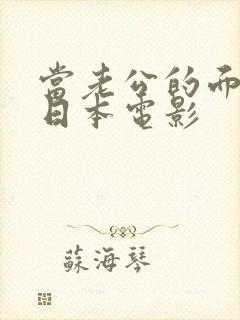 當老公的而
日本電影
蘇海琴